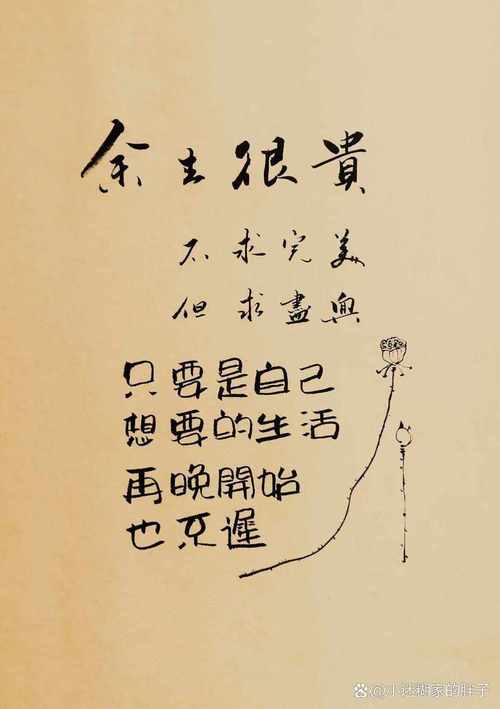 余生很貴
不求完美
但求盡興
只要是自己
想要的生活
再晚開始
也不遲
@小糊糊家的胖子